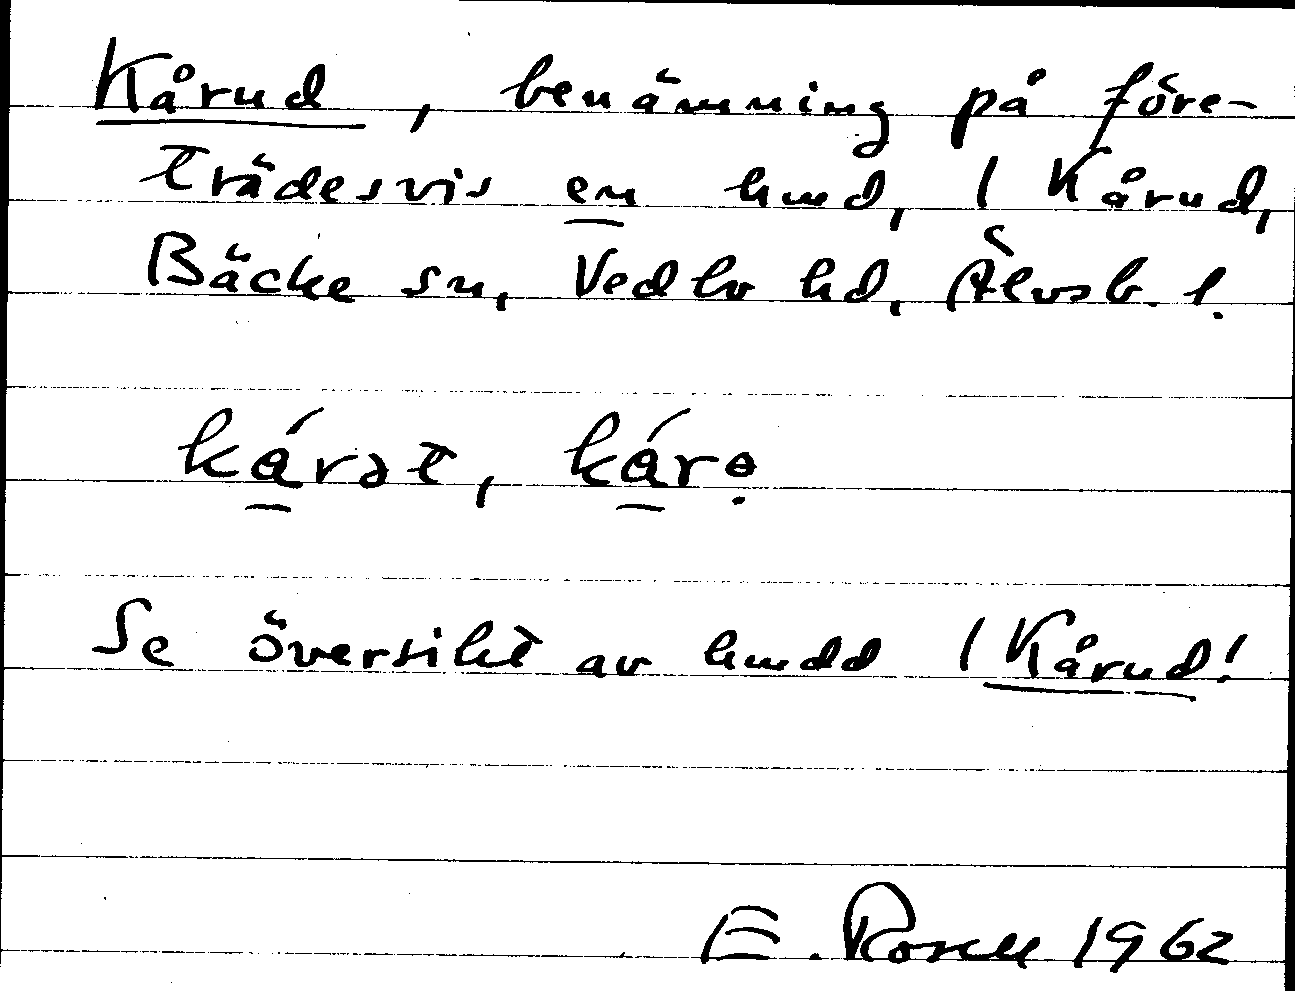 Kårud, benämning på före-
trädesvis en hmd, 1 Kårud,
Bäcke sn, Vedbo hd, Älvsb. l.
kárət, kárɵ̣
Se översikt av hmdd 1 Kårud!
E. Rosell 1962